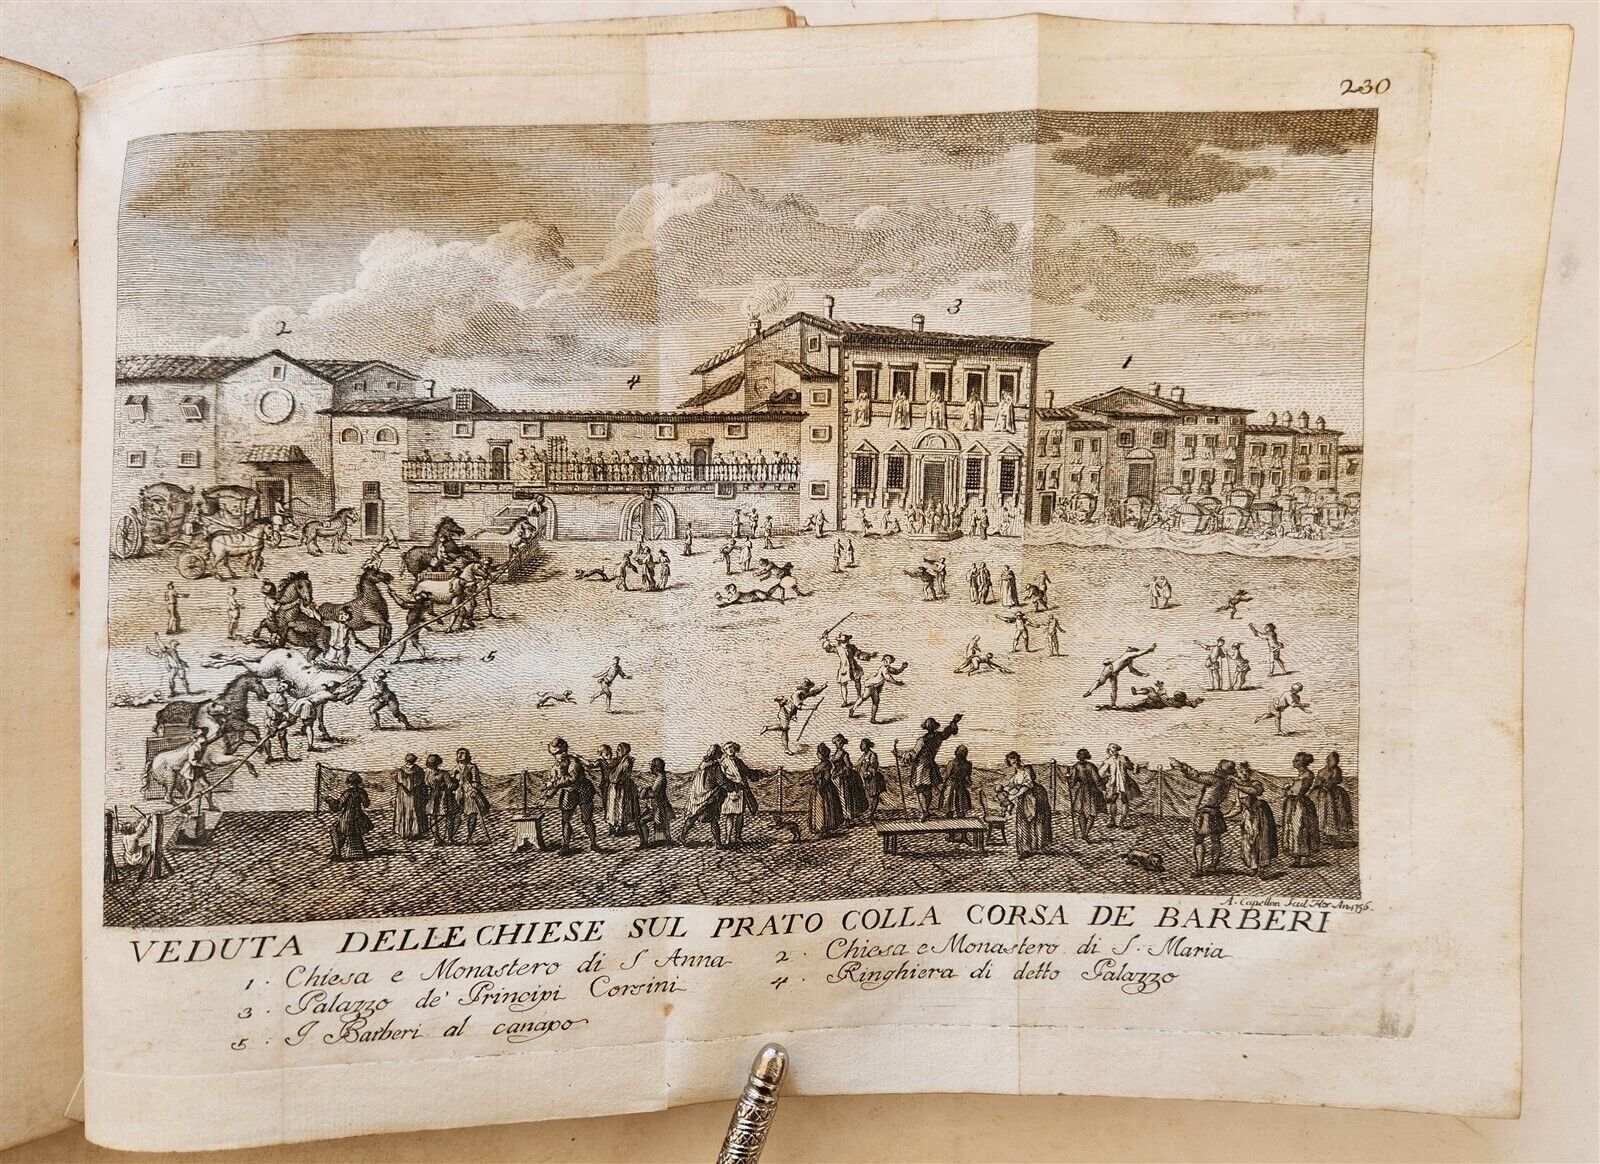 230
2
3
4
1
5
A. Capellan Scul. Flor. An. 1756.
VEDUTA DELLE CHIESE SUL PRATO COLLA CORSA DE BARBERI
1. Chiesa e Monastero di S Anna 2. Chiesa e Monastero di S. Maria
3. Palazzo de' Principi Corsini 4. Ringhiera di detto Palazzo
5. I Barberi al canapo